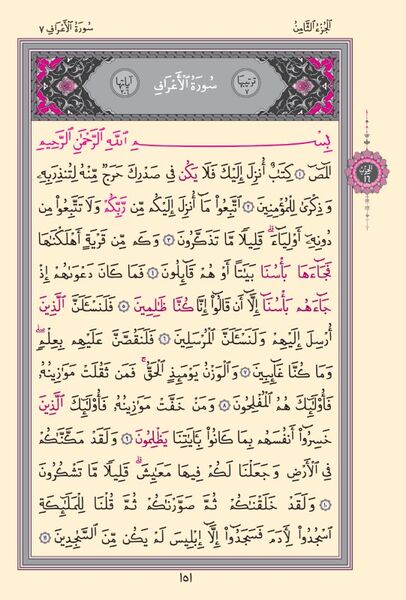 الجزء الثامن
سورة الأعراف ٧
ترتيبها ٧
سُورَةُ ٱلْأَعْرَافِ
آياتها ٢٠٦
بِسْمِ ٱللَّهِ ٱلرَّحْمَٰنِ ٱلرَّحِيمِ
الٓمٓصٓ ١ كِتَٰبٌ أُنزِلَ إِلَيْكَ فَلَا يَكُن فِى صَدْرِكَ حَرَجٌ مِّنْهُ لِتُنذِرَ بِهِۦ
وَذِكْرَىٰ لِلْمُؤْمِنِينَ ٢ ٱتَّبِعُوا۟ مَآ أُنزِلَ إِلَيْكُم مِّن رَّبِّكُمْ وَلَا تَتَّبِعُوا۟ مِن
دُونِهِۦٓ أَوْلِيَآءَ ۗ قَلِيلًا مَّا تَذَكَّرُونَ ٣ وَكَم مِّن قَرْيَةٍ أَهْلَكْنَٰهَا
فَجَآءَهَا بَأْسُنَا بَيَٰتًا أَوْ هُمْ قَآئِلُونَ ٤ فَمَا كَانَ دَعْوَىٰهُمْ إِذْ
جَآءَهُم بَأْسُنَآ إِلَّآ أَن قَالُوٓا۟ إِنَّا كُنَّا ظَٰلِمِينَ ٥ فَلَنَسْـَٔلَنَّ ٱلَّذِينَ
أُرْسِلَ إِلَيْهِمْ وَلَنَسْـَٔلَنَّ ٱلْمُرْسَلِينَ ٦ فَلَنَقُصَّنَّ عَلَيْهِم بِعِلْمٍ ۖ
وَمَا كُنَّا غَآئِبِينَ ٧ وَٱلْوَزْنُ يَوْمَئِذٍ ٱلْحَقُّ ۚ فَمَن ثَقُلَتْ مَوَٰزِينُهُۥ
فَأُو۟لَٰٓئِكَ هُمُ ٱلْمُفْلِحُونَ ٨ وَمَنْ خَفَّتْ مَوَٰزِينُهُۥ فَأُو۟لَٰٓئِكَ ٱلَّذِينَ
خَسِرُوٓا۟ أَنفُسَهُم بِمَا كَانُوا۟ بِـَٔايَٰتِنَا يَظْلِمُونَ ٩ وَلَقَدْ مَكَّنَّٰكُمْ
فِى ٱلْأَرْضِ وَجَعَلْنَا لَكُمْ فِيهَا مَعَٰيِشَ ۗ قَلِيلًا مَّا تَشْكُرُونَ
١٠ وَلَقَدْ خَلَقْنَٰكُمْ ثُمَّ صَوَّرْنَٰكُمْ ثُمَّ قُلْنَا لِلْمَلَٰٓئِكَةِ
ٱسْجُدُوا۟ لِءَادَمَ فَسَجَدُوٓا۟ إِلَّآ إِبْلِيسَ لَمْ يَكُن مِّنَ ٱلسَّٰجِدِينَ ١١
الحزب
١٦
١٥١